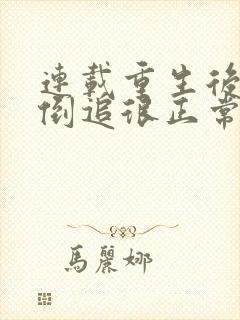 連載重生後
倒追很正常
馬麗娜